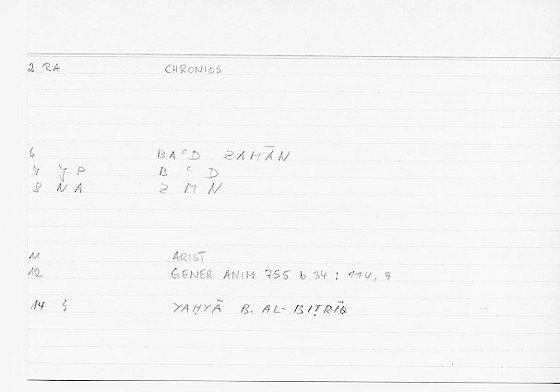 2 RA CHRONIOS
6 BAᶜD ZAMĀN
7 JP B ᶜ D
8 NA Z M N
11 ARIST
12 GENER ANIM 755 b 34 : 114, 9
14 YAḤYĀ B. AL-BIṬRĪQ